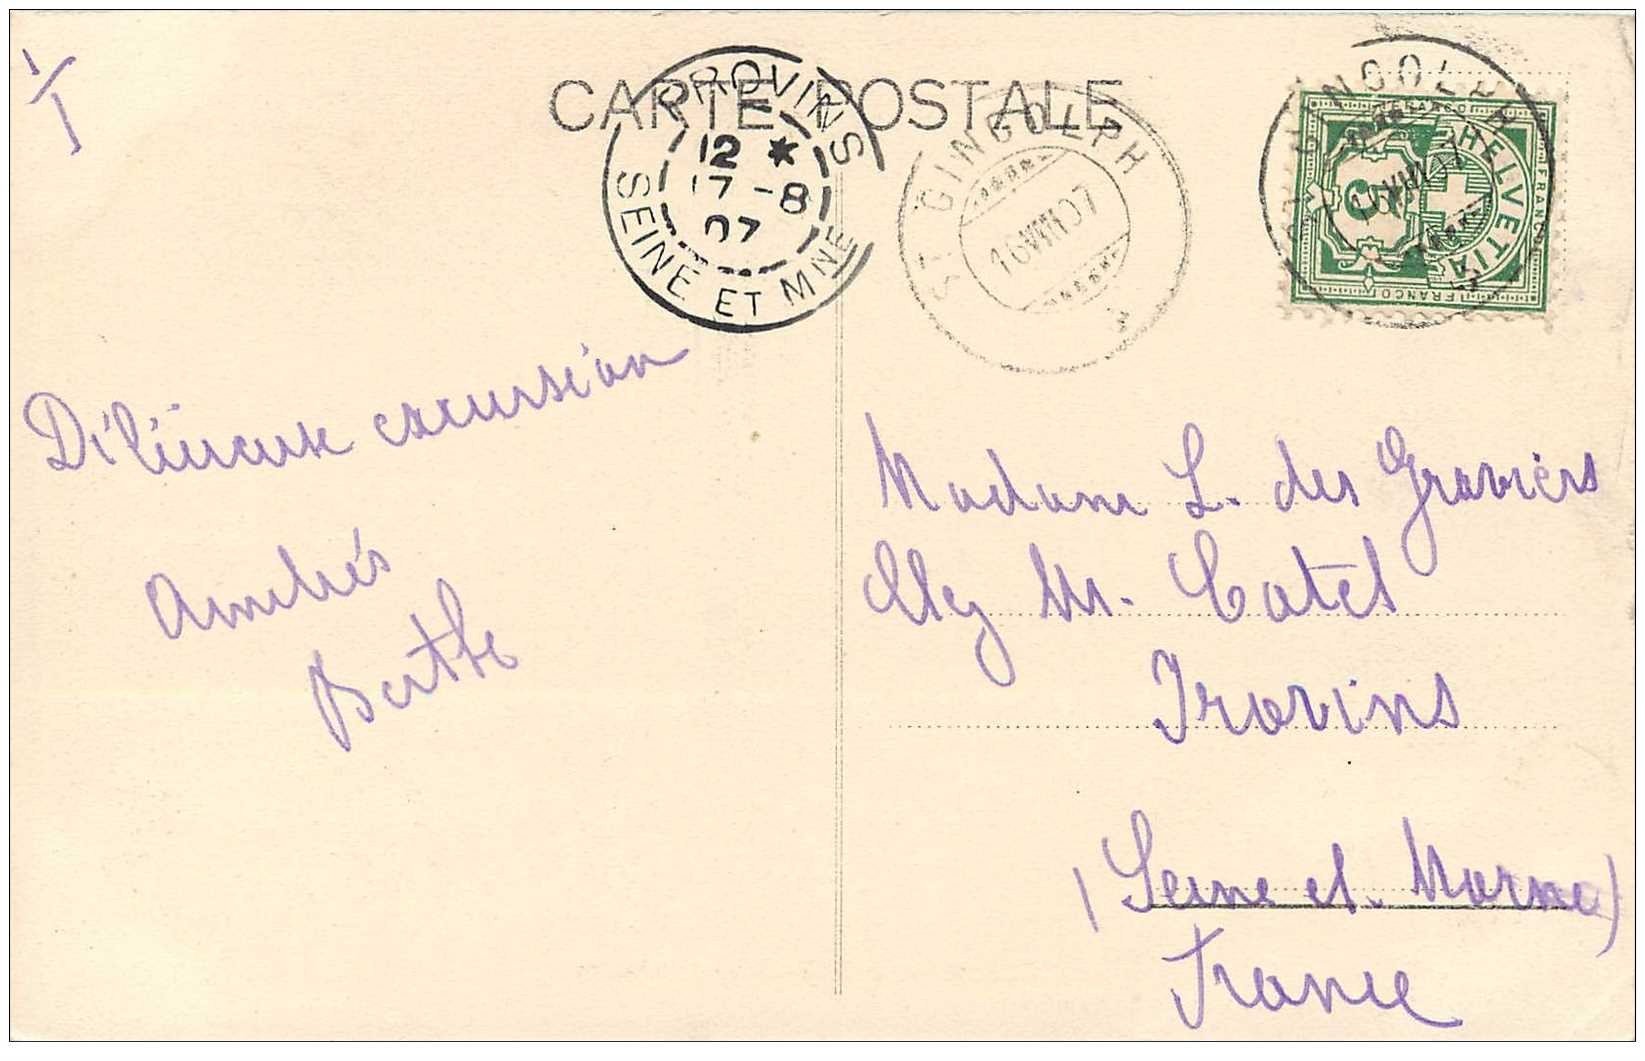 CARTE POSTALE
PROVINS
12 *
17 - 8
07
SEINE ET MNE
ST GINGOLPH
16 VIII 07
GINGOLPH
16 VIII 07
FRANCO
HELVETIA
5
FRANCO
FRANCO
Délicieuse excursion
Amitiés
Berthe
Madame L. des Graviers
Chez Mr. Catel
Provins
(Seine et Marne)
France